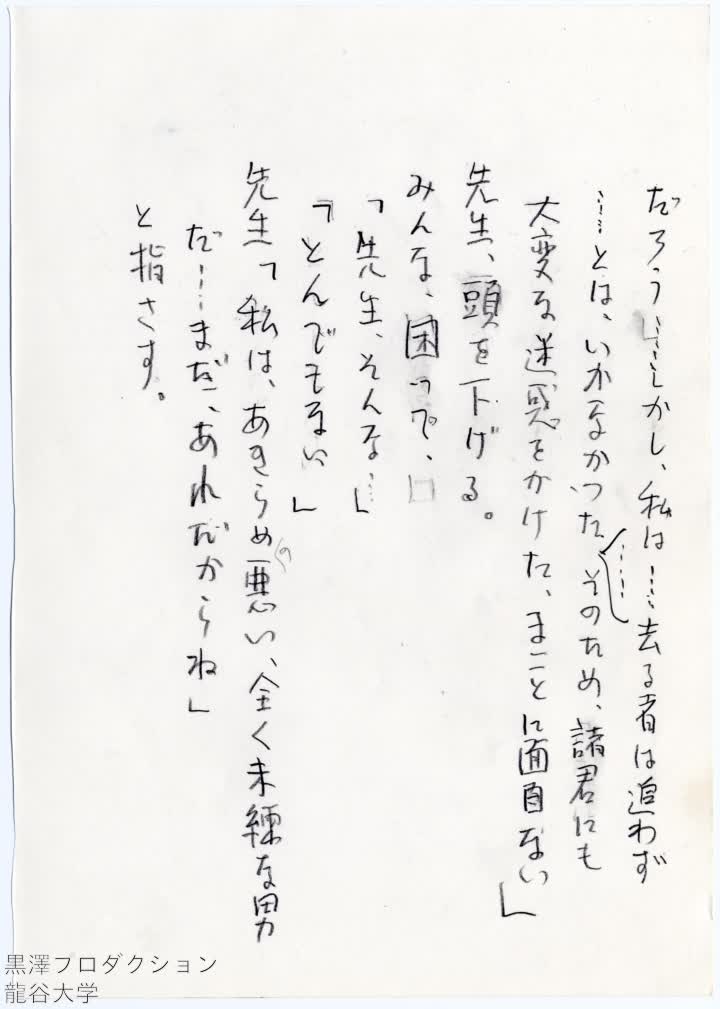 だろう……しかし、私は……去る者は追わず
……とは、いかなかった……そのため、諸君にも
大変な迷惑をかけた、まことに面目ない」
先生、頭を下げる。
みんな、困って、
「先生、そんな……」
「とんでもない」
先生「私は、あきらめの悪い、全く未練な男
だ……まだ、あれだからね」
と指さす。
黒澤プロダクション
龍谷大学